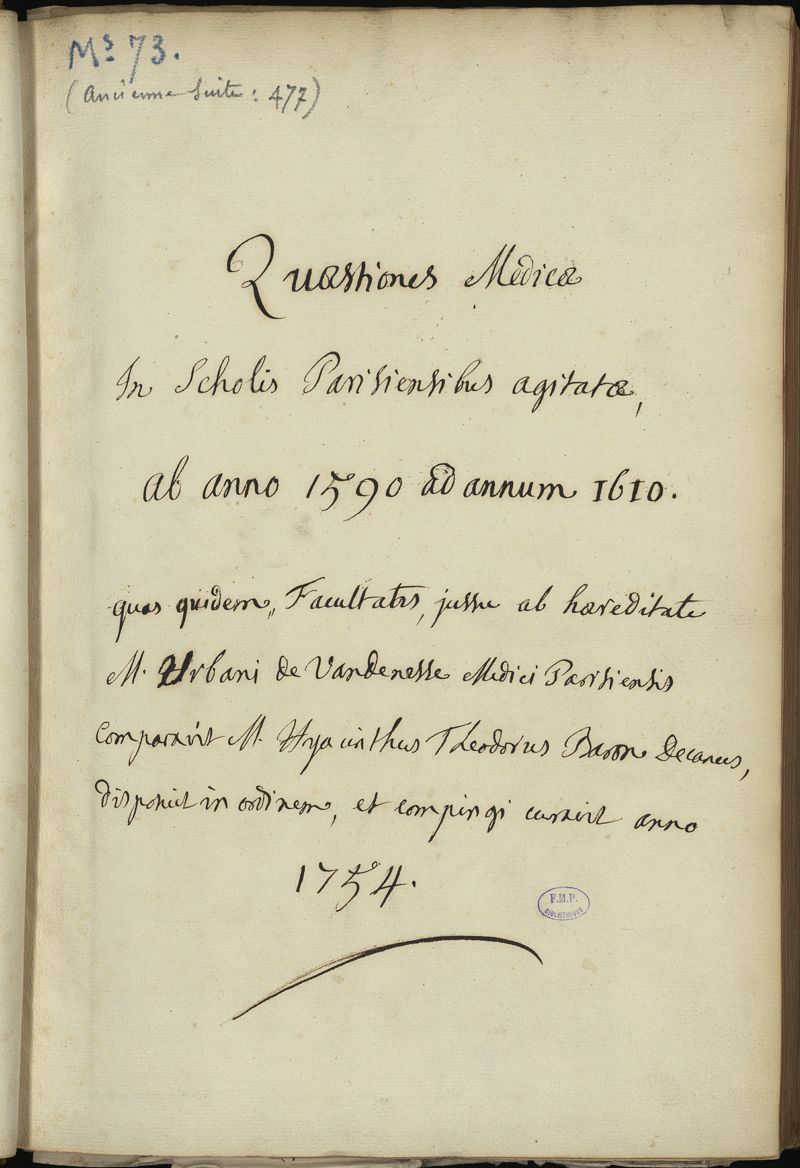 Ms 73.
(Ancienne Suite : 477)
Quæstiones Medicæ
In Scholis Parisiensibus agitatæ,
ab anno 1590 ad annum 1610.
quas quidem, Facultatis, jussu ab hæreditate
M. Urbani de Vandenesse Medici Parisiensis
comparavit M. Hyacinthus Theodorus Baron Decanus,
disposuit in ordinem, et compingi curavit anno
1754.
F.M.P.
BIBLIOTHEQUE